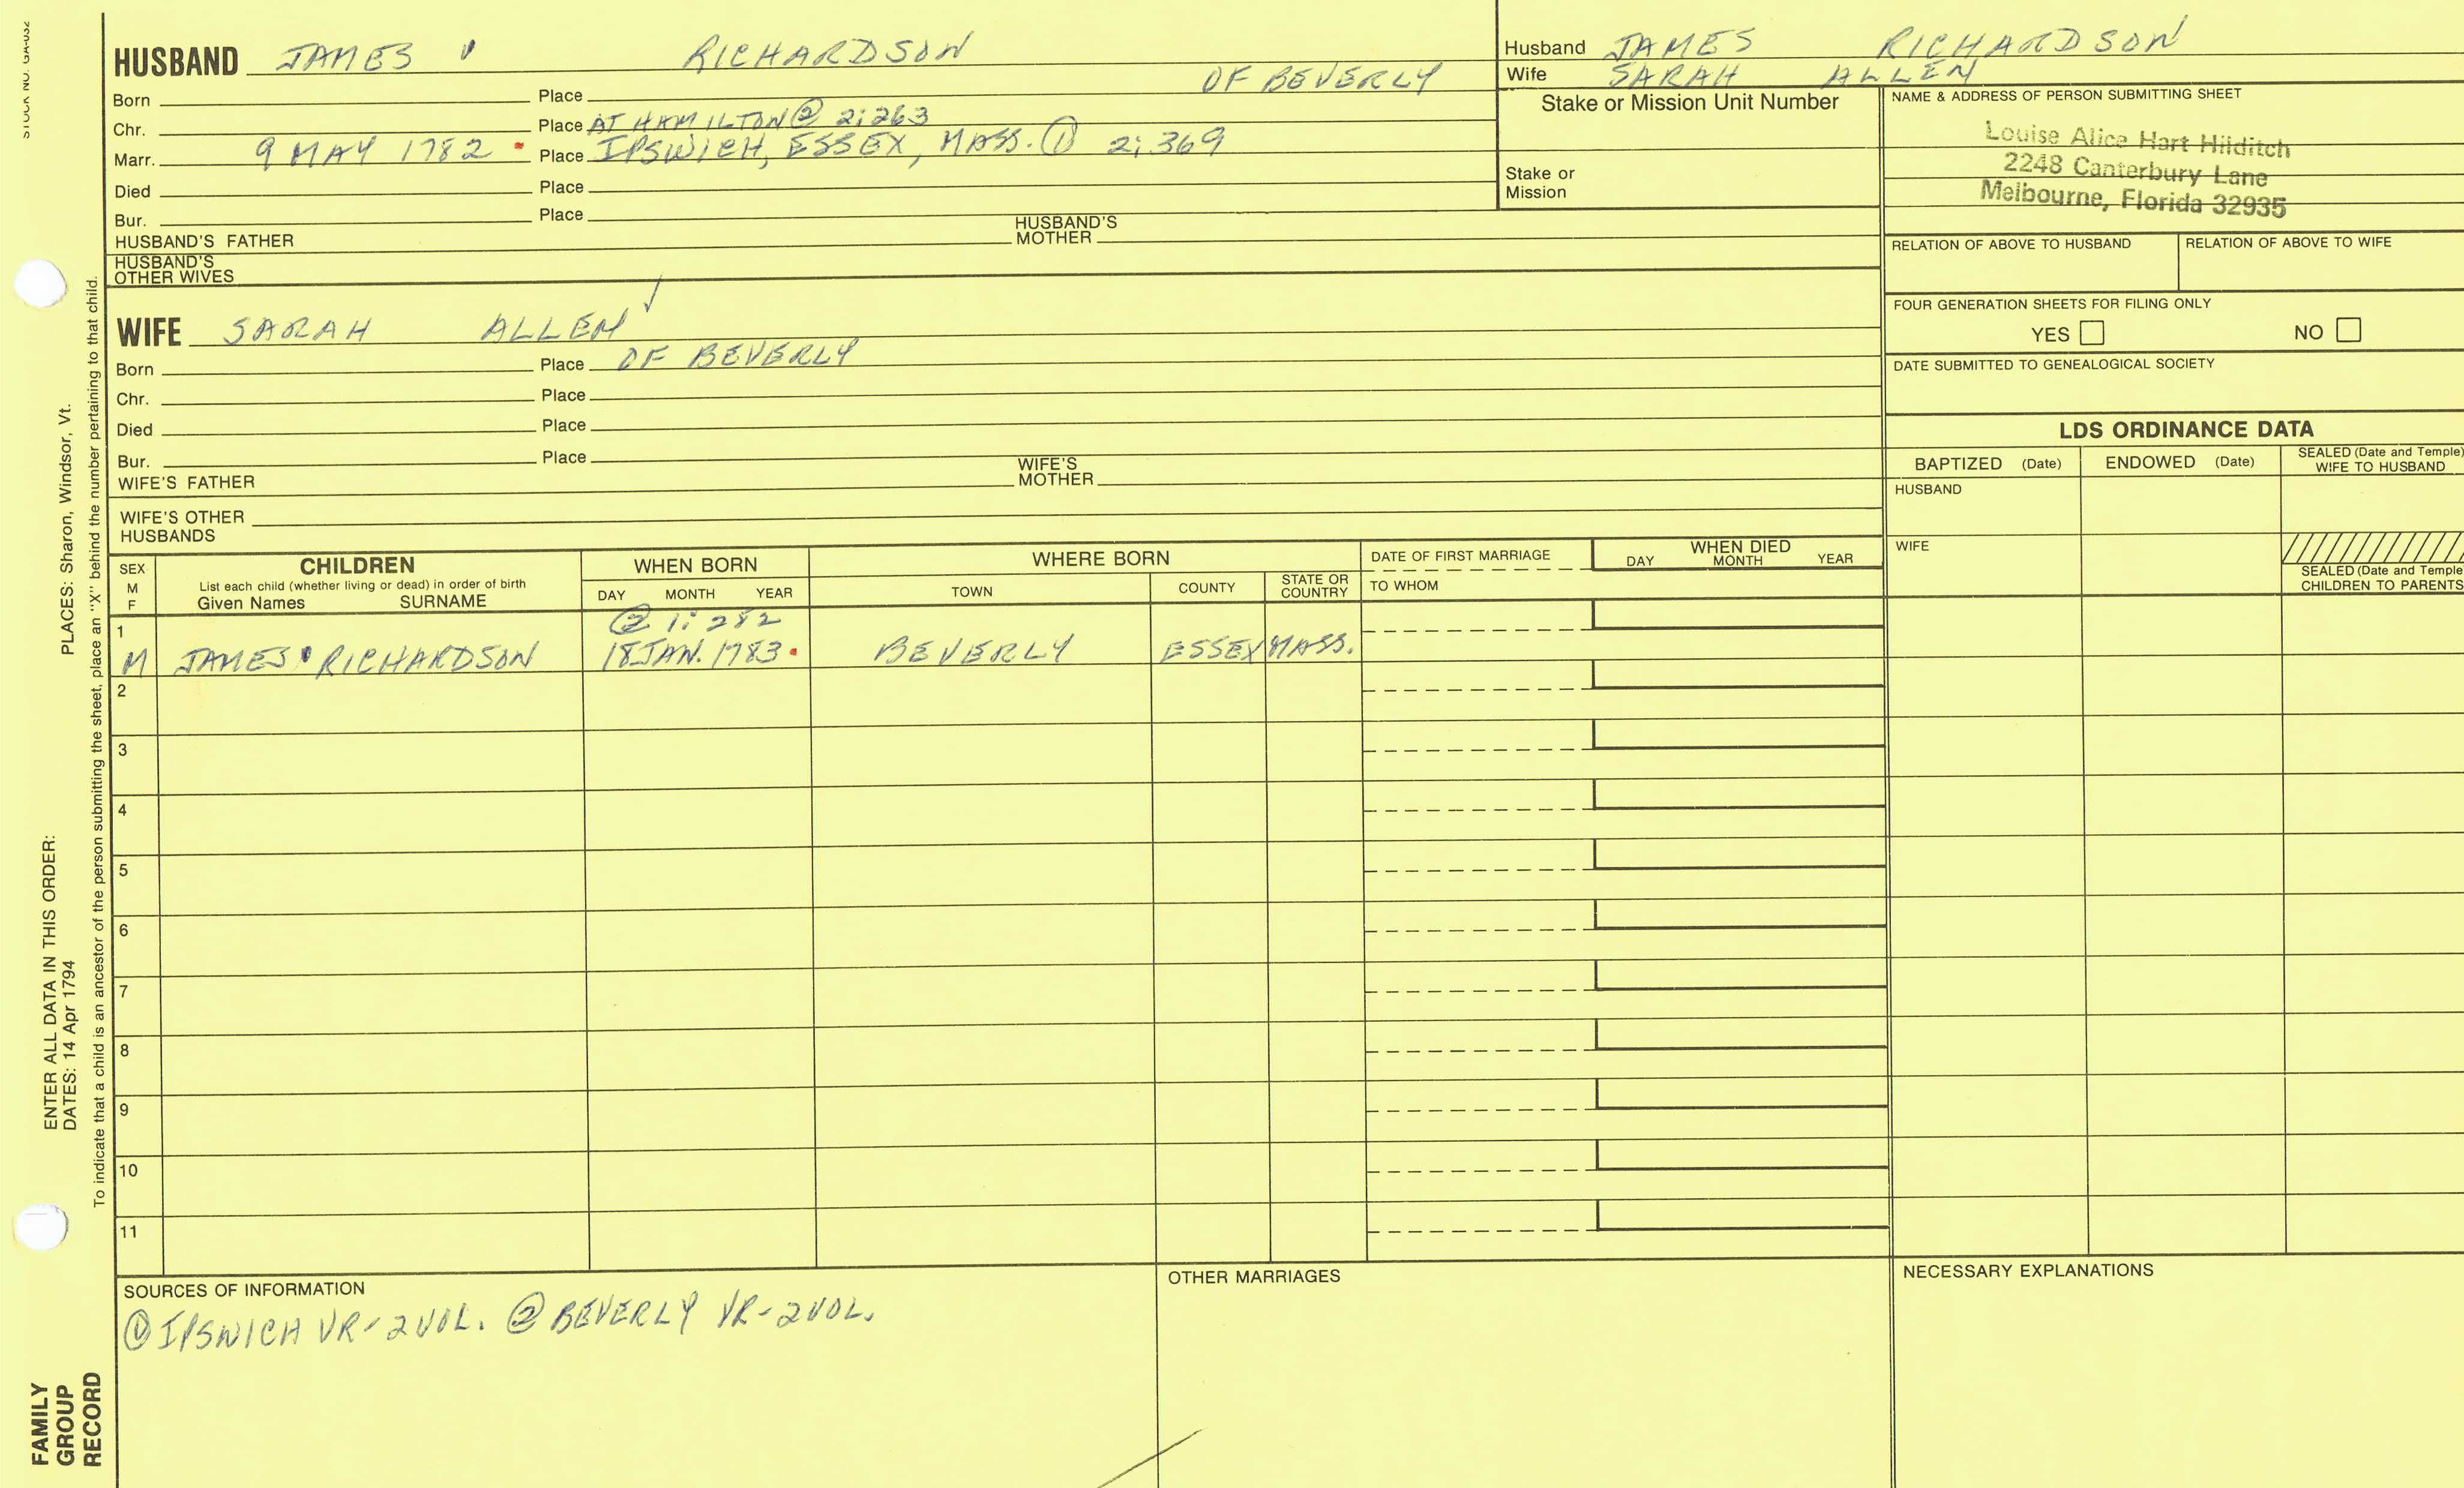 STOCK NO. GA-032
HUSBAND JAMES RICHARDSON
OF BEVERLY
Born Place
Chr. Place AT HAMILTON ② 2:263
Marr. 9 MAY 1782 Place IPSWICH, ESSEX, MASS. ① 2:369
Died Place
Bur. Place
HUSBAND'S FATHER HUSBAND'S MOTHER
HUSBAND'S OTHER WIVES
WIFE SARAH ALLEN
Born Place OF BEVERLY
Chr. Place
Died Place
Bur. Place
WIFE'S FATHER WIFE'S MOTHER
WIFE'S OTHER HUSBANDS
Husband JAMES RICHARDSON
Wife SARAH ALLEN
Stake or Mission Unit Number
Stake or Mission
NAME & ADDRESS OF PERSON SUBMITTING SHEET
Louise Alice Hart Hilditch
2248 Canterbury Lane
Melbourne, Florida 32935
RELATION OF ABOVE TO HUSBAND RELATION OF ABOVE TO WIFE
FOUR GENERATION SHEETS FOR FILING ONLY
YES NO
DATE SUBMITTED TO GENEALOGICAL SOCIETY
LDS ORDINANCE DATA
BAPTIZED (Date) ENDOWED (Date) SEALED (Date and Temple) WIFE TO HUSBAND
HUSBAND
WIFE
SEALED (Date and Temple
CHILDREN TO PARENTS
SEX M F
CHILDREN
List each child (whether living or dead) in order of birth
Given Names SURNAME
WHEN BORN
DAY MONTH YEAR
WHERE BORN
TOWN COUNTY STATE OR COUNTRY
DATE OF FIRST MARRIAGE
TO WHOM
WHEN DIED
DAY MONTH YEAR
1 ② 1:282
M JAMES RICHARDSON 18 JAN. 1783 BEVERLY ESSEX MASS.
2
3
4
5
6
7
8
9
10
11
SOURCES OF INFORMATION
① IPSWICH VR-2 VOL. ② BEVERLY VR-2 VOL.
OTHER MARRIAGES
NECESSARY EXPLANATIONS
ENTER ALL DATA IN THIS ORDER:
DATES: 14 Apr 1794 PLACES: Sharon, Windsor, Vt.
To indicate that a child is an ancestor of the person submitting the sheet, place an "X" behind the number pertaining to that child.
FAMILY
GROUP
RECORD